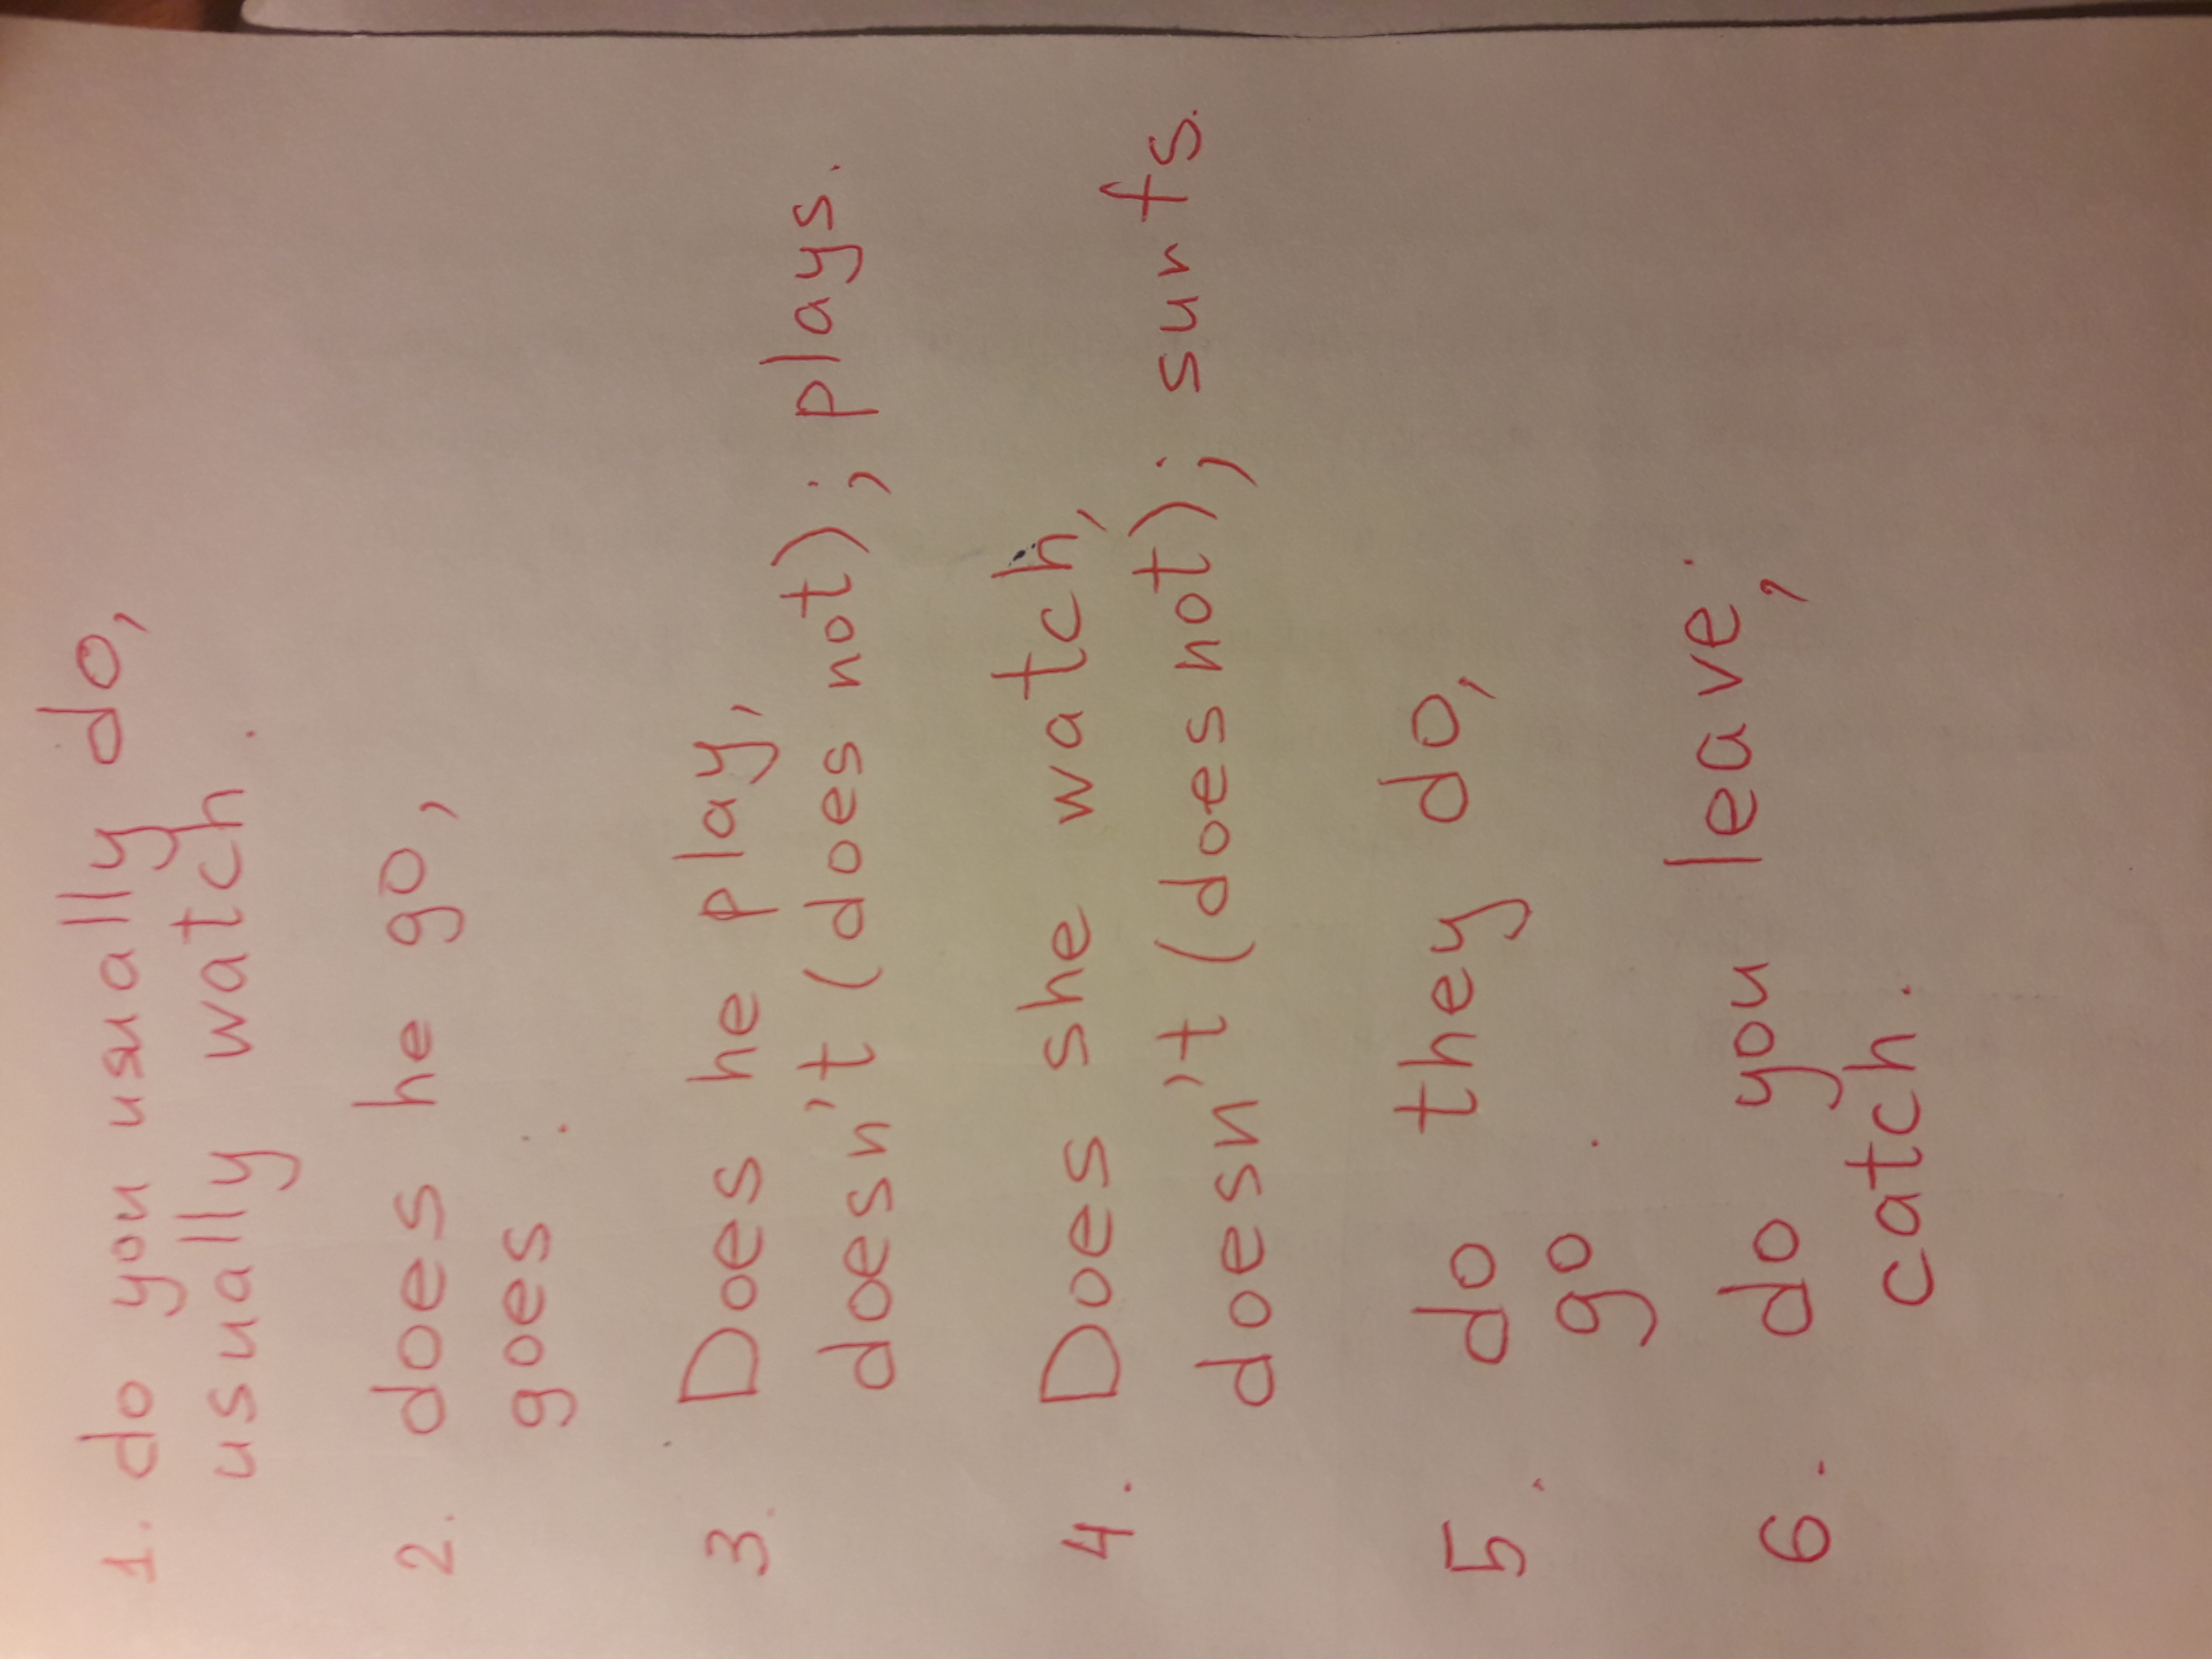 1. do you usually do,
usually watch.
2. does he go,
goes.
3. Does he play,
doesn't (does not); plays.
4. Does she watch,
doesn't (does not); surfs.
5. do they do,
go.
6. do you leave;
catch.